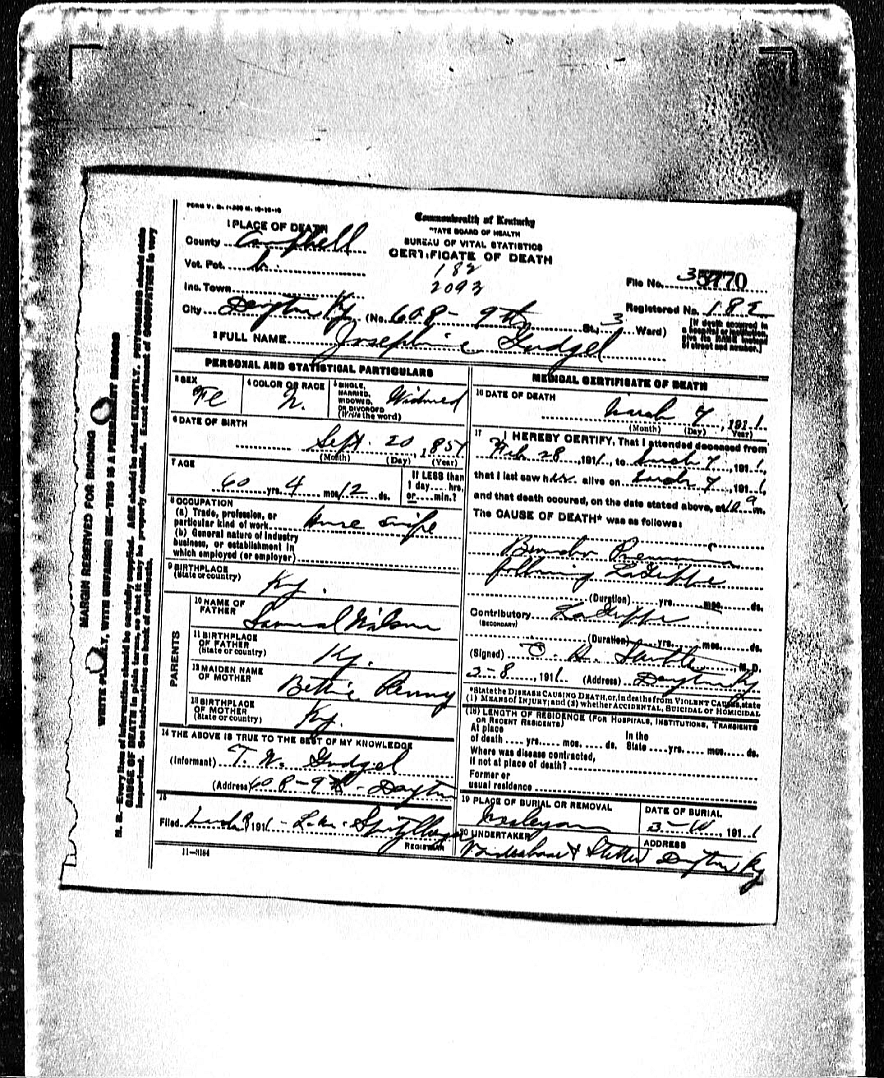 FORM V. S.
Commonwealth of Kentucky
STATE BOARD OF HEALTH
BUREAU OF VITAL STATISTICS
CERTIFICATE OF DEATH
1 PLACE OF DEATH
County Campbell
Vot. Pct.
182
2093
Inc. Town
File No. 5770
City Dayton Ky (No. 608-9th St., 3 Ward)
Registered No. 182
[If death occurred in a hospital or institution, give its NAME instead of street and number.]
2 FULL NAME Josephine Gudgel
PERSONAL AND STATISTICAL PARTICULARS
3 SEX Fe
4 COLOR OR RACE W.
5 SINGLE, MARRIED, WIDOWED OR DIVORCED (Write the word) Widowed
6 DATE OF BIRTH
Sept. 20, 185
(Month) (Day) (Year)
7 AGE
60 yrs. 4 mos. 12 ds.
If LESS than 1 day....hrs. or....min.?
8 OCCUPATION
(a) Trade, profession, or particular kind of work House wife
(b) General nature of industry business, or establishment in which employed (or employer)
9 BIRTHPLACE
(State or country) Ky.
PARENTS
10 NAME OF FATHER Samuel Wilson
11 BIRTHPLACE OF FATHER
(State or country) Ky.
12 MAIDEN NAME OF MOTHER Bettie Penny
13 BIRTHPLACE OF MOTHER
(State or country) Ky.
14 THE ABOVE IS TRUE TO THE BEST OF MY KNOWLEDGE
(Informant) T. W. Gudgel
(Address) 608-9th - Dayton
15
Filed 1911
REGISTRAR
11-3184
MEDICAL CERTIFICATE OF DEATH
16 DATE OF DEATH
March 7, 1911
(Month) (Day) (Year)
17 I HEREBY CERTIFY, That I attended deceased from
Feb 28, 1911, to March 7, 1911,
that I last saw her alive on March 7, 1911,
and that death occured, on the date stated above, at m.
The CAUSE OF DEATH* was as follows:
Broncho Pneumonia
following LaGrippe
(Duration) yrs. mos. ds.
Contributory LaGrippe
(SECONDARY)
(Duration) yrs. mos. ds.
(Signed) M. D.
3-8, 1911 (Address) Dayton Ky
*State the DISEASE CAUSING DEATH, or, in deaths from VIOLENT CAUSES, state (1) MEANS OF INJURY; and (2) whether ACCIDENTAL, SUICIDAL or HOMICIDAL
(18) LENGTH OF RESIDENCE (FOR HOSPITALS, INSTITUTIONS, TRANSIENTS OR RECENT RESIDENTS)
At place of death yrs. mos. ds. In the State yrs. mos. ds.
Where was disease contracted, if not at place of death?
Former or usual residence
19 PLACE OF BURIAL OR REMOVAL
DATE OF BURIAL
3-10, 1911
20 UNDERTAKER
ADDRESS
Dayton Ky
MARGIN RESERVED FOR BINDING
WRITE PLAINLY, WITH UNFADING INK—THIS IS A PERMANENT RECORD
N. B.—Every item of information should be carefully supplied. AGE should be stated EXACTLY. PHYSICIANS should state
CAUSE OF DEATH in plain terms, so that it may be properly classified. Exact statement of OCCUPATION is very
important. See instructions on back of certificate.